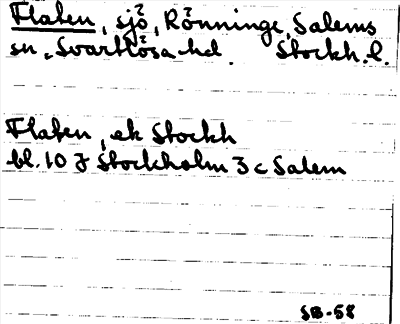 Flaten, sjö, Rönninge, Salems
sn, Svartlösa hd. Stockh. l.
Flaten, ek Stockh
bl. 10 J Stockholm 3 c Salem
SB-58